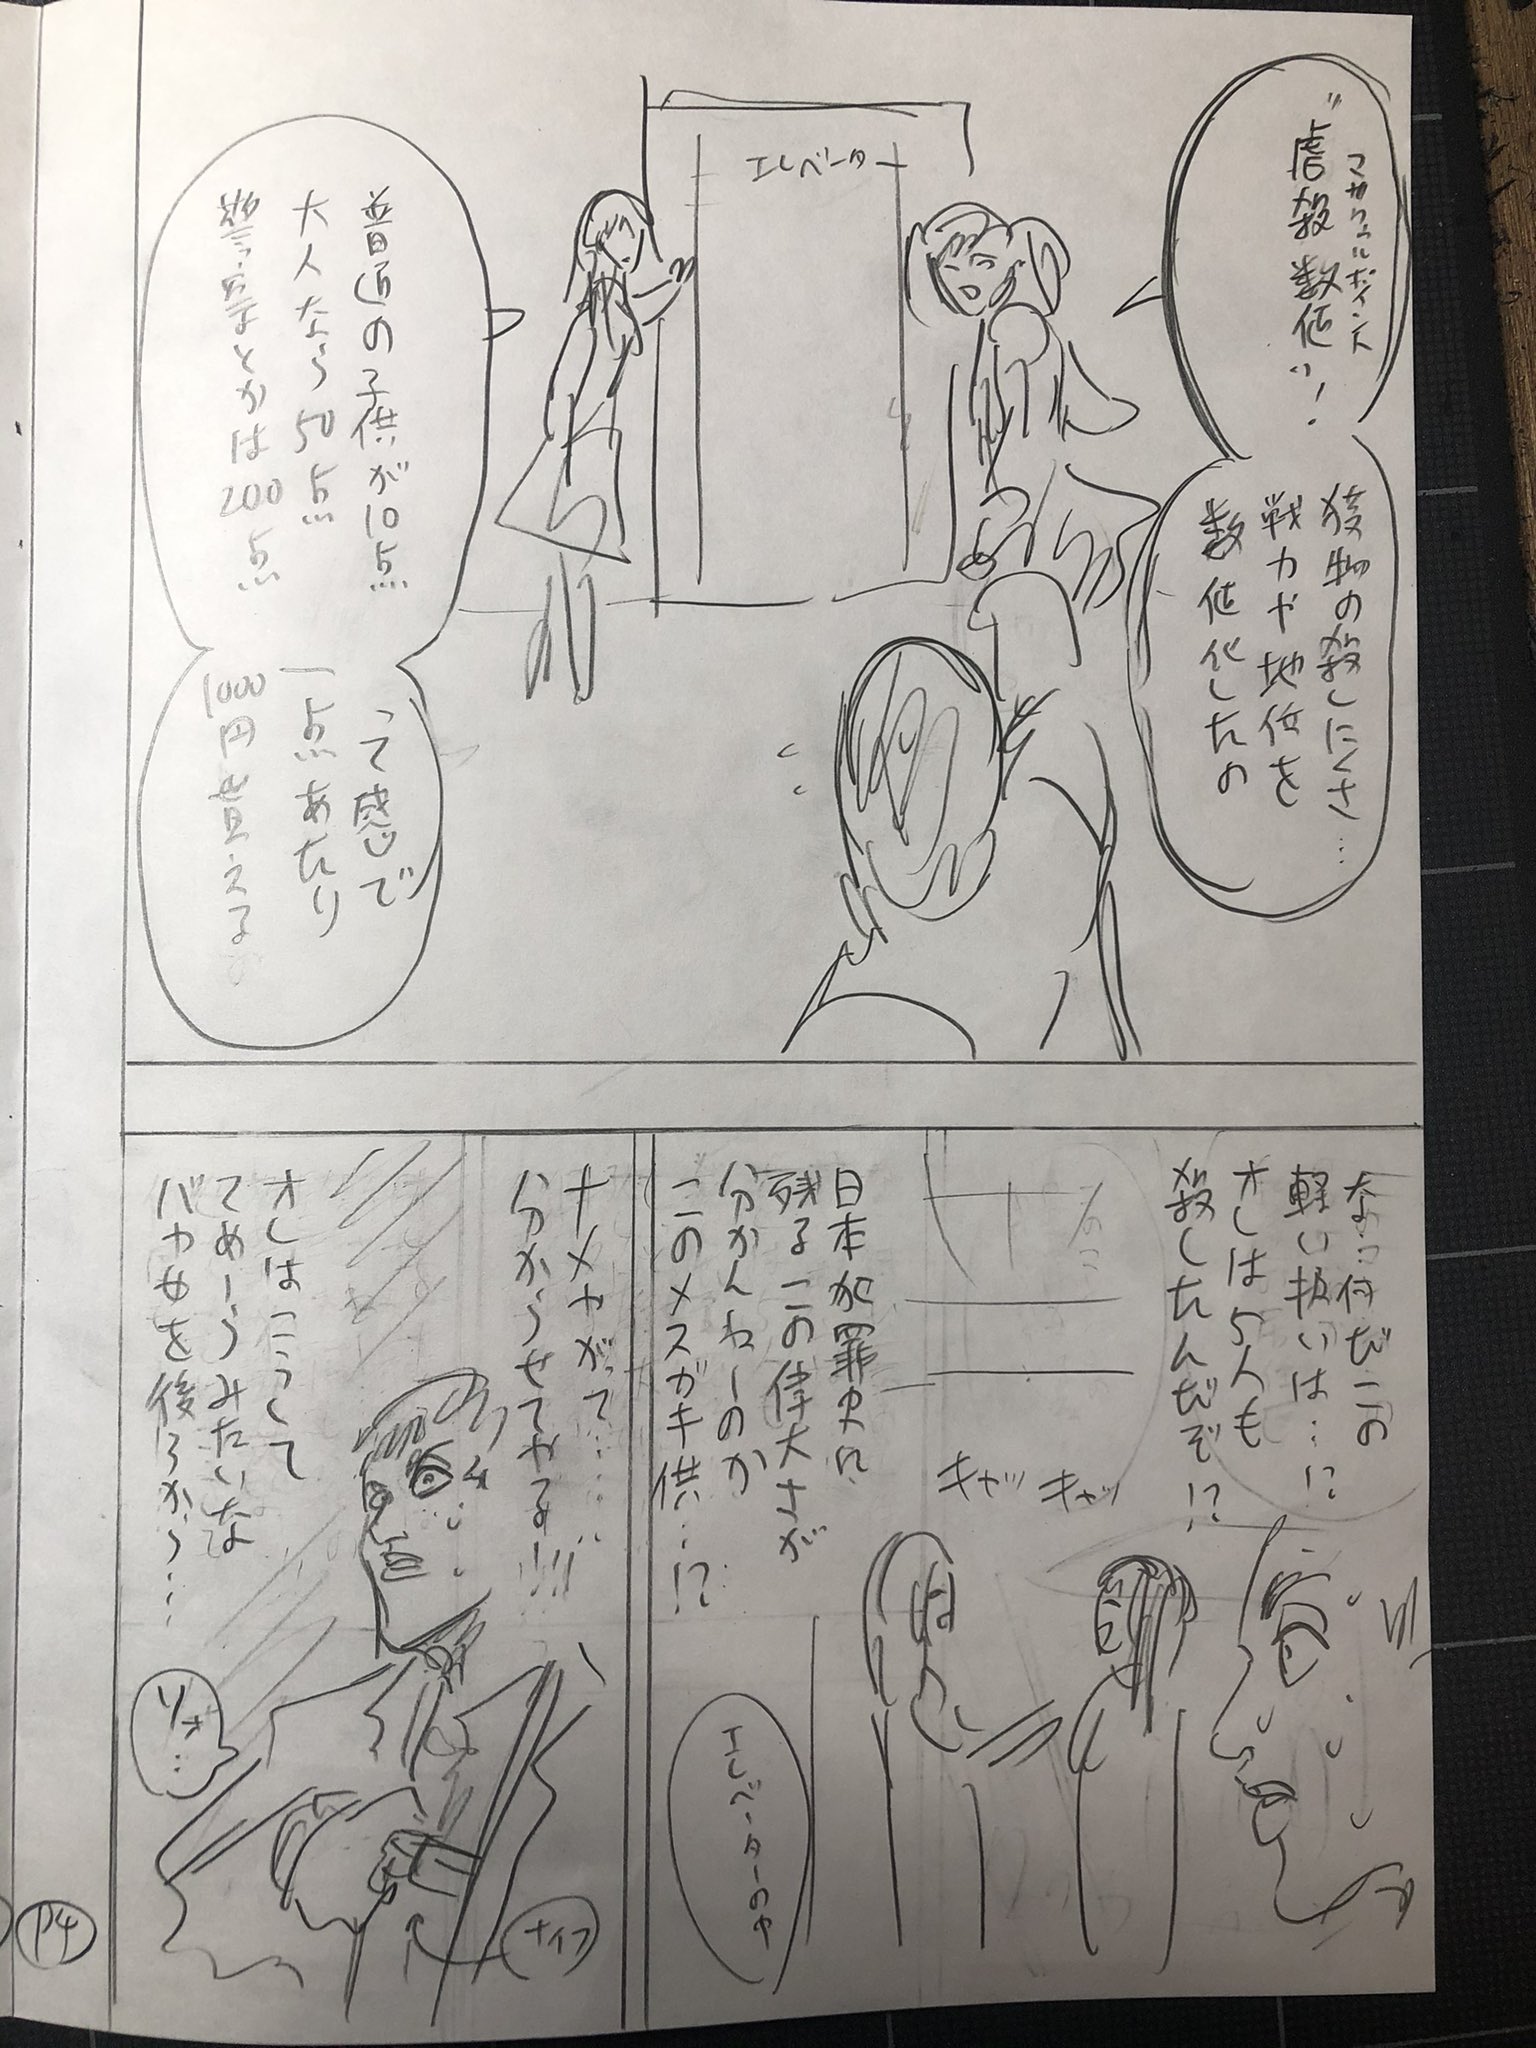 マーダーポイント
"虐殺数値"!
獲物の殺しにくさ…
戦力や地位を
数値化したの
エレベーター
普通の子供が10点
大人なら50点
警察とかは200点
って感じで
一点あたり
1000円貰える
なっ…何だこの
軽い扱いは…!?
オレは5人も
殺したんだぞ!?
キャッ キャッ
日本犯罪史に
残るこの偉大さが
分かんねーのか
このメスガキ供…!?
エレベーターの中
ナメやがって……
分からせてやる!!!
オレはこうして
てめーらみたいな
バカ女を後ろから…
ソォ…
ナイフ
P4